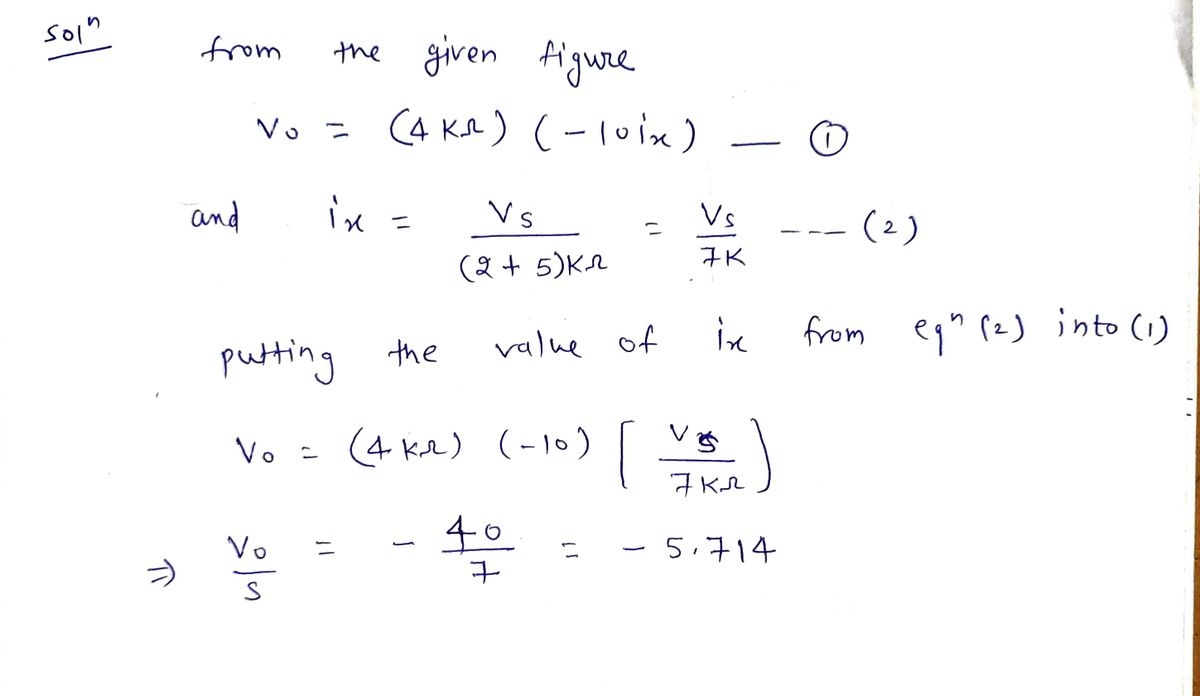 Solⁿ
from the given figure
Vo = (4 KΩ) (-10ix) — ①
and ix = Vs / (2 + 5)KΩ = Vs / 7K --- (2)
putting the value of ix from eqⁿ (2) into (1)
Vo = (4 KΩ) (-10) [ Vs / 7KΩ )
⇒ Vo / S = - 40 / 7 = - 5.714